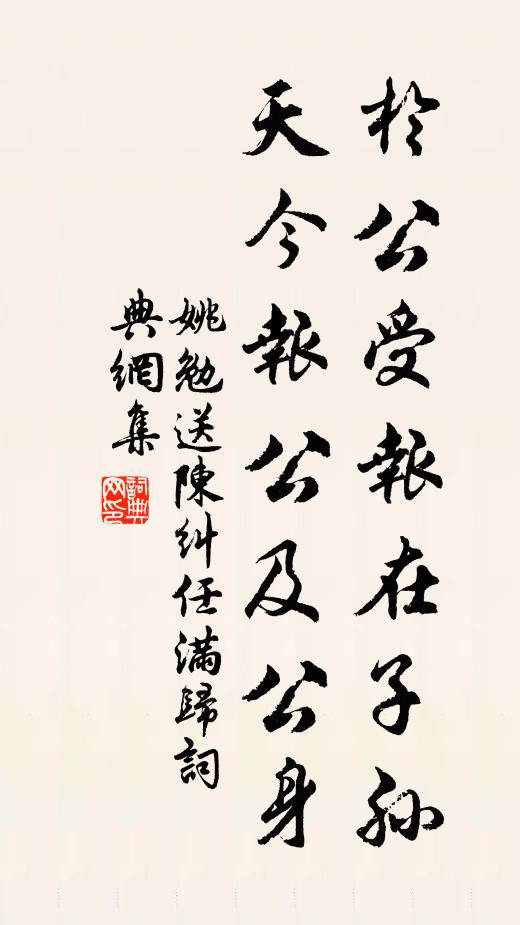 於公受報在子孫
天今報公及公身
姚勉送陳糾任滿歸詞
典網集
詞典網印